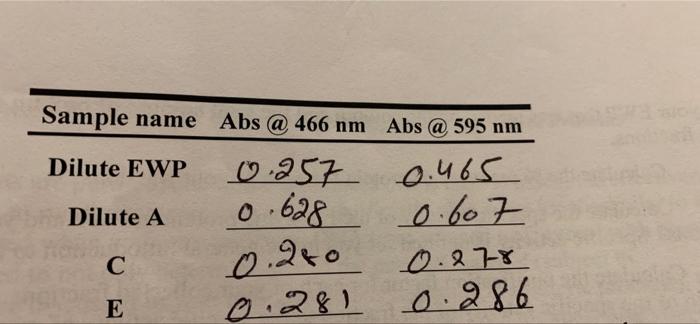 Sample name Abs @ 466 nm Abs @ 595 nm
Dilute EWP 0.257 0.465
Dilute A 0.628 0.607
C 0.278
E 0.281 0.286